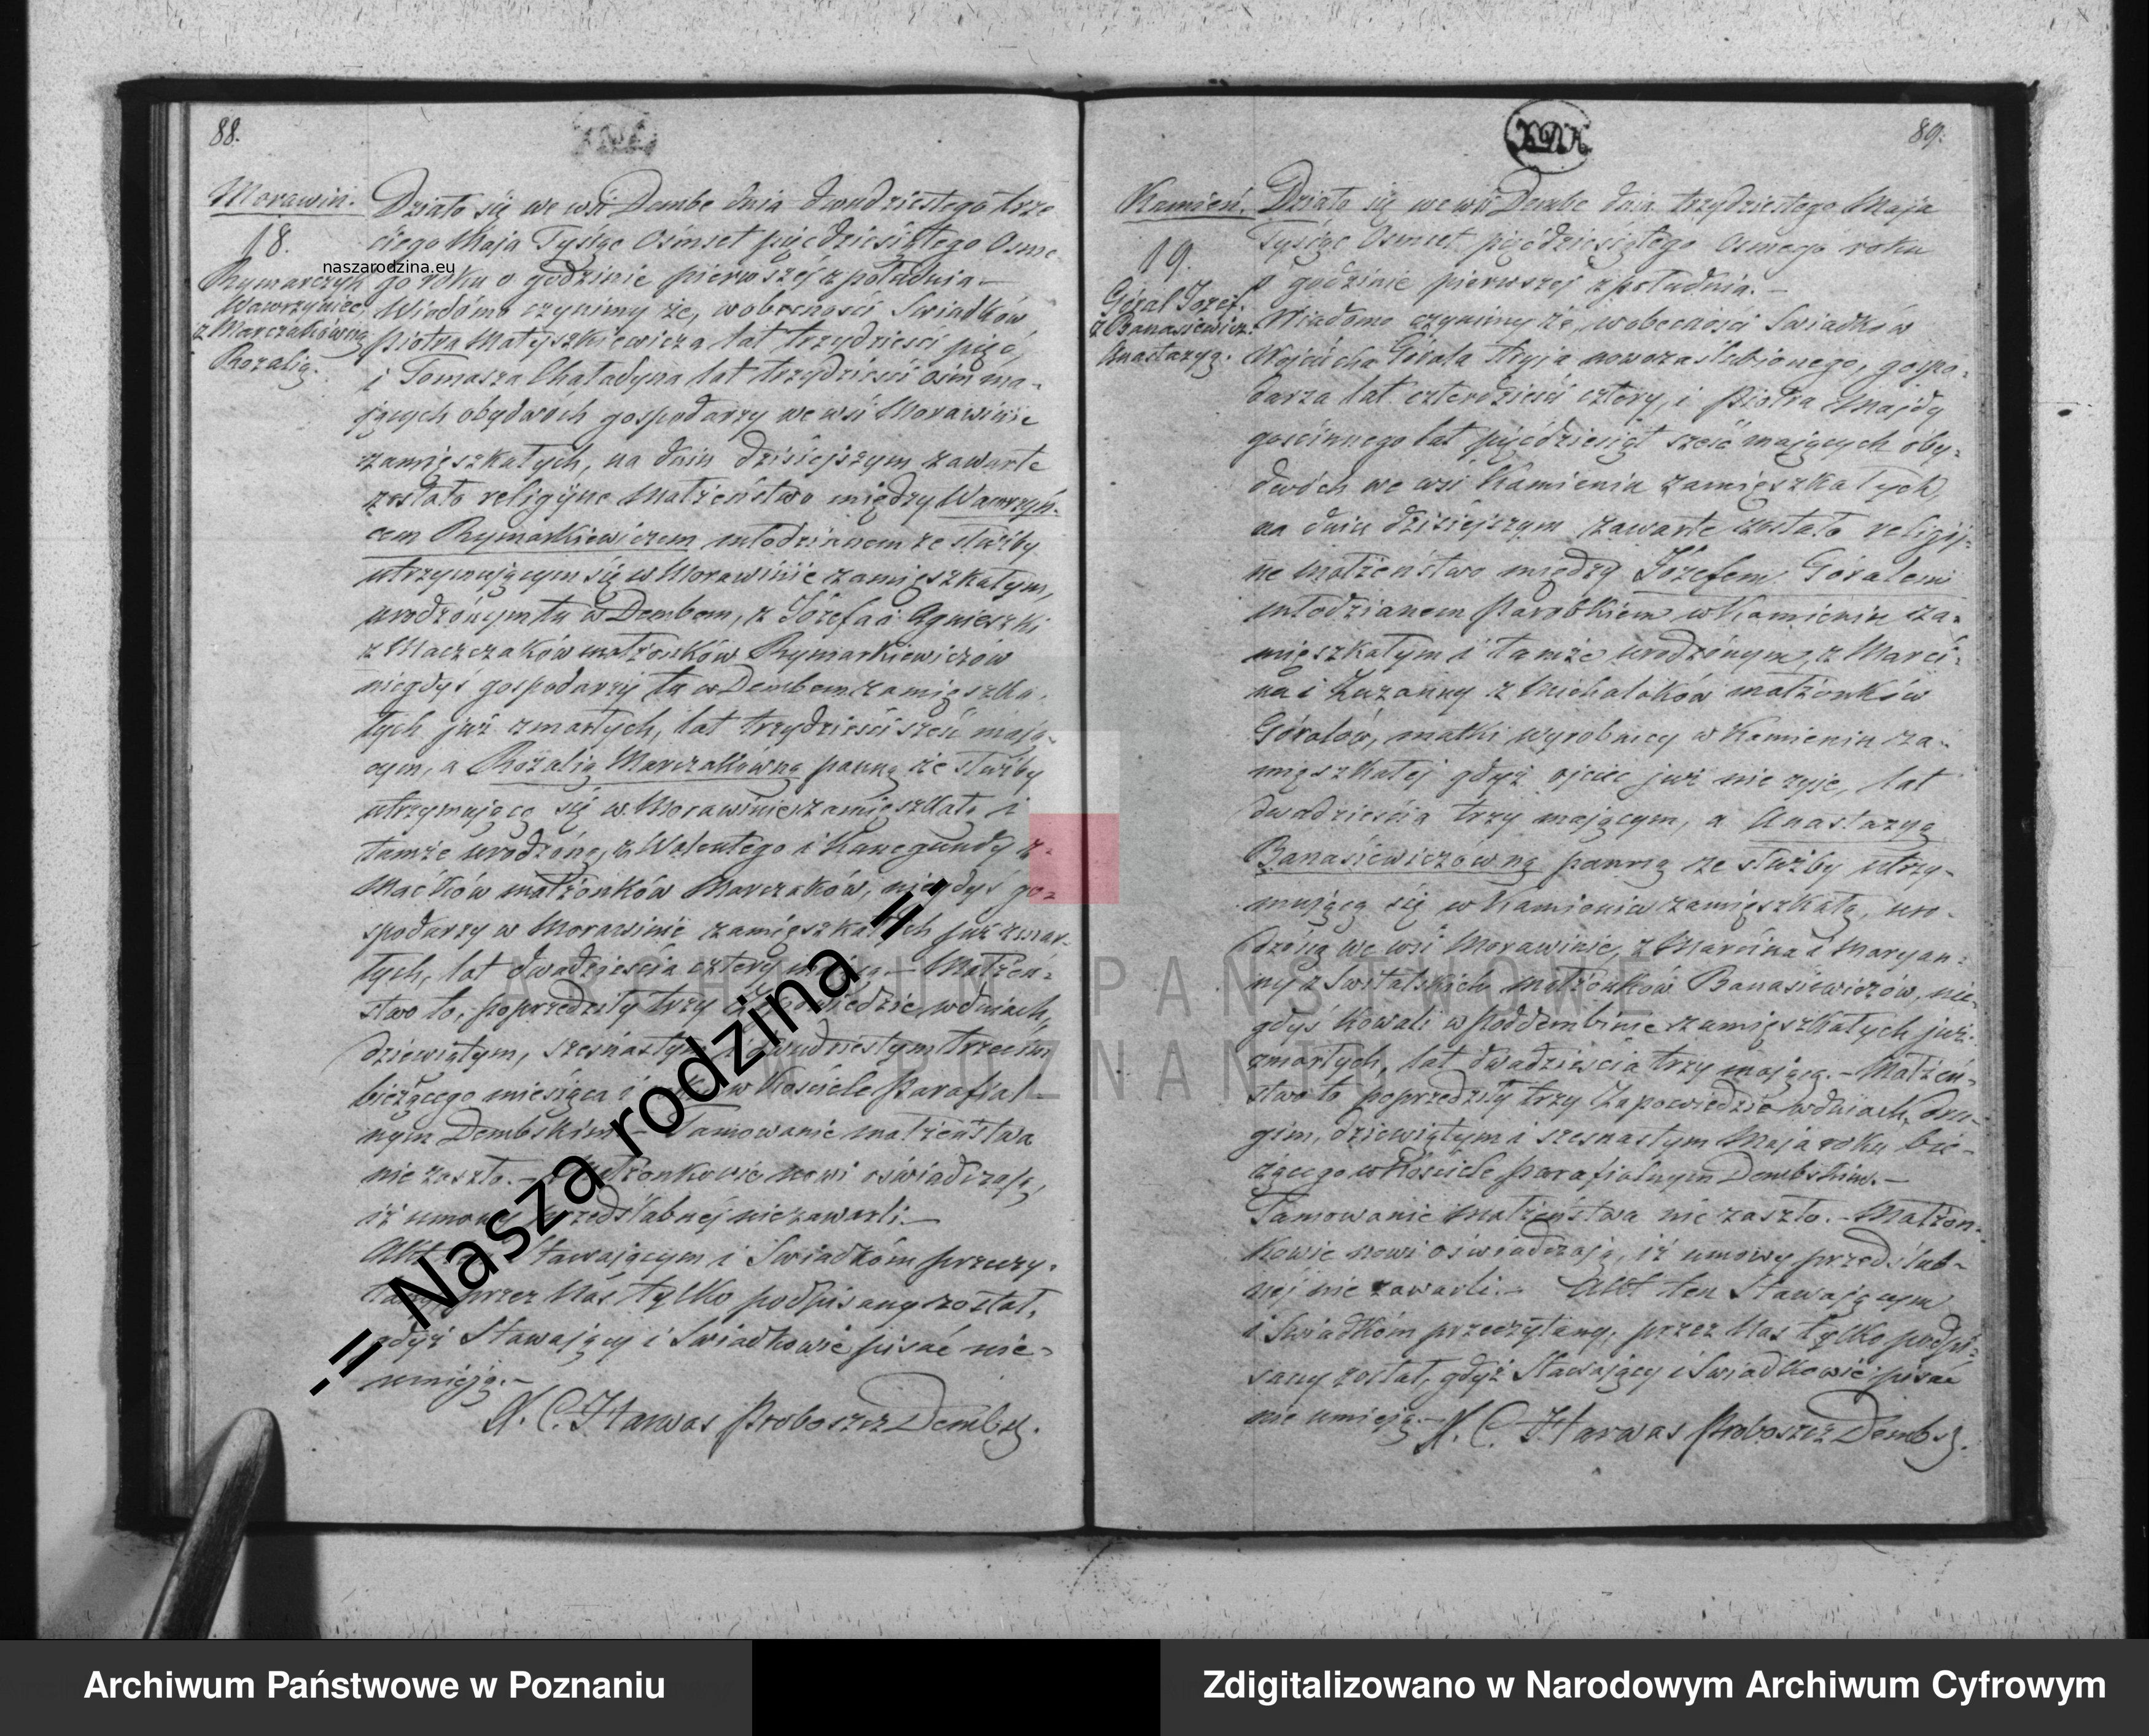 88.
Morawin.
18.
Rymarczyk
Wawrzyniec
z Marczaków̄ną
Rozalią.
naszarodzina.eu
Działo się we wsi Dembe dnia dwudziestego trze
ciego Maja Tysiąc Ośmset pięćdziesiątego Osme
go roku o godzinie pierwszéj z południa. –
Wiadomo czynimy że, w obecności Świadków
Piotra Matyszkiewicza lat trzydzieści pięć,
i Tomasza Chaładyna lat trzydzieści ośm ma-
jących obydwóch gospodarzy we wsi Morawinie
zamięszkałych, na dniu dzisiejszym zawarte
zostało religijne Małżeństwo między Wawrzyń-
cem Rymarkiewiczem młodzianem ze służby
utrzymującym się w Morawinie zamięszkałym,
urodzonym tu w Dembem, z Józefa i Agnieszki
z Maczczaków małżonków Rymarkiewiczów
niegdyś gospodarzy tu w Dembem zamięszka-
łych już zmarłych, lat trzydzieści sześć mają-
cym, a Rozalią Marczakówną panną ze służby
utrzymującą się w Morawinie zamięszkałą i
tamże urodzoną, z Walentego i Kunegundy z
Maćków małżonków Marczaków, niegdyś go-
spodarzy w Morawinie zamięszkałych już zmar-
łych, lat dwadzieścia cztery mającą. – Małżeń-
stwo to, poprzedziły trzy Zapowiedzie w dniach,
dziewiątym, szesnastym i dwudziestym trzecim
bieżącego miesiąca i roku w Kościele Parafial-
nym Dembskim. – Tamowanie małżeństwa
nie zaszło. – Małżonkowie nowi oświadczają,
iż umowy przedślubnéj nie zawarli. –
Akt ten Stawającym i Świadkóm przeczy-
tany, przez Nas tylko podpisany został,
gdyż Stawający i Świadkowie pisać nie-
umieją. –
X. C. Harwas Proboszcz Dembs.
89.
Kamień.
19.
Góral Józef.
z Banasiewicz.
Anastazyą.
Działo się we wsi Dembe dnia trzydziestego Maja
Tysiąc Ośmset pięćdziesiątego Osmego roku
o godzinie pierwszej z południa. –
Wiadomo czynimy że, w obecności Świadków
Wojciecha Górala stryja nowozaślubionego, gospo-
darza lat czterdzieści cztery, i Piotra Majdy
gościnnego lat pięćdziesiąt sześć mających oby-
dwóch we wsi Kamieniu zamięszkałych,
na dniu dzisiejszym zawarte zostało religij-
ne Małżeństwo między Józefem Góralem
młodzianem Parobkiem w Kamieniu za-
mięszkałym i tamże urodzonym, z Marci-
na i Zuzanny z Michalaków małżonków
Góralów, matki wyrobnicy w Kamieniu za-
mięszkałej gdyż ojciec już nie żyje, lat
dwadzieścia trzy mającym, a Anastazyą
Banasiewiczówną panną ze służby utrzy-
mującą się w Kamieniu zamięszkałą, uro-
dzoną we wsi Morawinie, z Marcina i Maryan-
ny z Świtalskich małżonków Banasiewiczów, nie-
gdyś kowali w Poddembinie zamięszkałych już
zmarłych, lat dwadzieścia trzy mającą. – Małżeń-
stwo to poprzedziły trzy Zapowiedzie w dniach, dru-
gim, dziewiątym i szesnastym Maja roku bie-
żącego w Kościele parafialnym Dembskim. –
Tamowanie Małżeństwa nie zaszło. – Małżon-
kowie nowi oświadczają, iż umowy przedślub-
néj nie zawarli. – Akt ten Stawającym
i Świadkóm przeczytany, przez Nas tylko podpi-
sany został, gdyż Stawający i Świadkowie pisać
nie umieją. – X. C. Harwas Proboszcz Dembs.
-= Nasza rodzina =-
ARCHIWUM PAŃSTWOWE
W POZNANIU
Archiwum Państwowe w Poznaniu
Zdigitalizowano w Narodowym Archiwum Cyfrowym